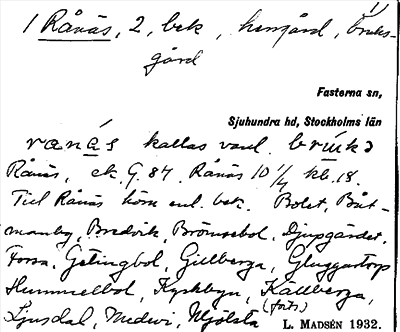 1 Rånäs, 2, bek, herrgård, bruks-
gård
Fasterna sn,
Sjuhundra hd, Stockholms län
kallas vanl.
Rånäs, ek. G. 87. Rånäs 10 1/4 kb. 18.
Till Rånäs höra enl. bek. Bolet, Båt-
manby, Bredvik, Brömsebol, Djupgärdet,
Forsa, Getingbol, Gillberga, Gluggartorp
Hummelbol, Kyrkbyn, Kallberga,
(forts)
Ljusdal, Medevi, Mjölsta
L. MADSÉN 1932.